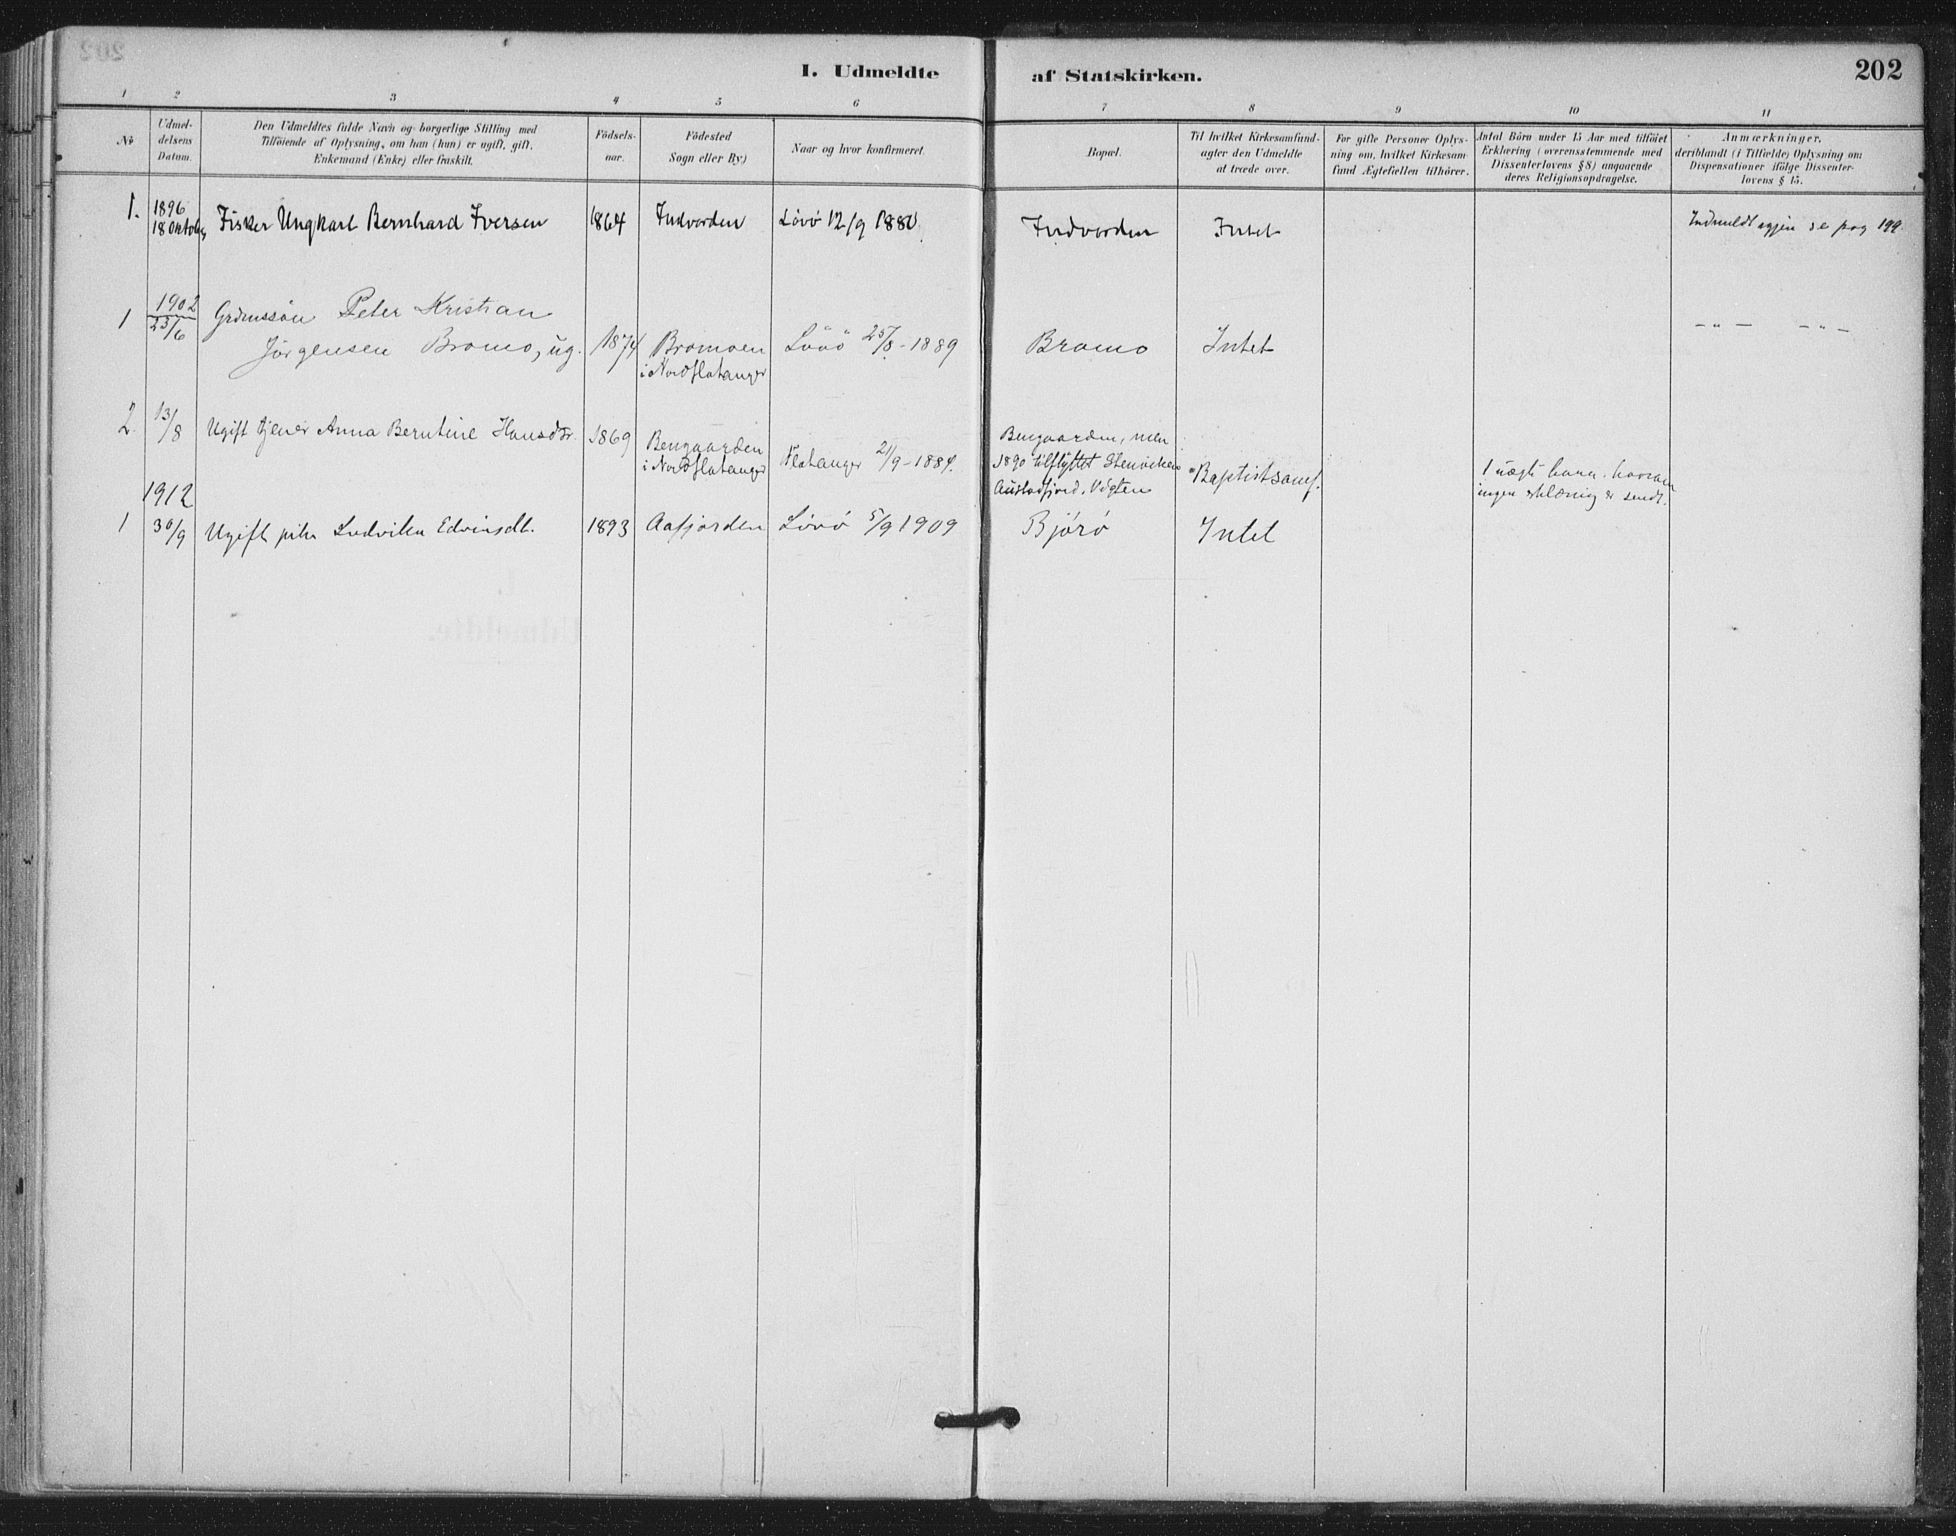 I. Udmeldte af Statskirken.
202
1 2 3 4 5 6 7 8 9 10 11
No
Udmel-
delsens
Datum.
Den Udmeldtes fulde Navn og borgerlige Stilling med
Tilföiende af Oplysning, om han (hun) er ugift, gift,
Enkemand (Enke) eller fraskilt.
Födsels-
aar.
Födested
Sogn eller By)
Naar og hvor konfirmeret.
Bopæl.
Til hvilket Kirkesamfund-
agter den Udmeldte
at træde over.
For gifte Personer Oplys-
ning om, hvilket Kirkesam-
fund Ægtefællen tilhörer.
Antal Börn under 15 Aar med tilföiet
Erklæring (overensstemmende med
Dissenterlovens § 8) angaaende
deres Religionsopdragelse.
Anmærkninger,
deriblandt (i Tilfælde) Oplysning om
Dispensationer ifölge Dissenter-
lovens § 15.
1. 1896
18 Oktober Fisker Ungkarl Bernhard Iversen 1864 Indvorden Lövö 12/9 1880 Indvorden Intet Indmeldt igjen se pag 199.
1902
1 23/6 Grdmssön Peter Kristian
Jörgensen Bromo, ug. 1874 Bromoen Lövö 25/8-1889 Bromo Intet -"- -"-
i Nordflatanger
2. 13/8 Ugift tjener Anna Berntine Hansdtr. 1869 Bengaarden
i Nordflatanger Flatanger 21/9-1884. Bengaarden, men
1890 tilflyttet
Austafjord, Vigten Baptistsamf. 1 uægte barn, hvorom
ingen erklæring er sendt.
1912
1 30/9 Ugift pike Ludvika Edvinsdt. 1893 Aafjorden Lövö 5/9 1909 Björö Intet